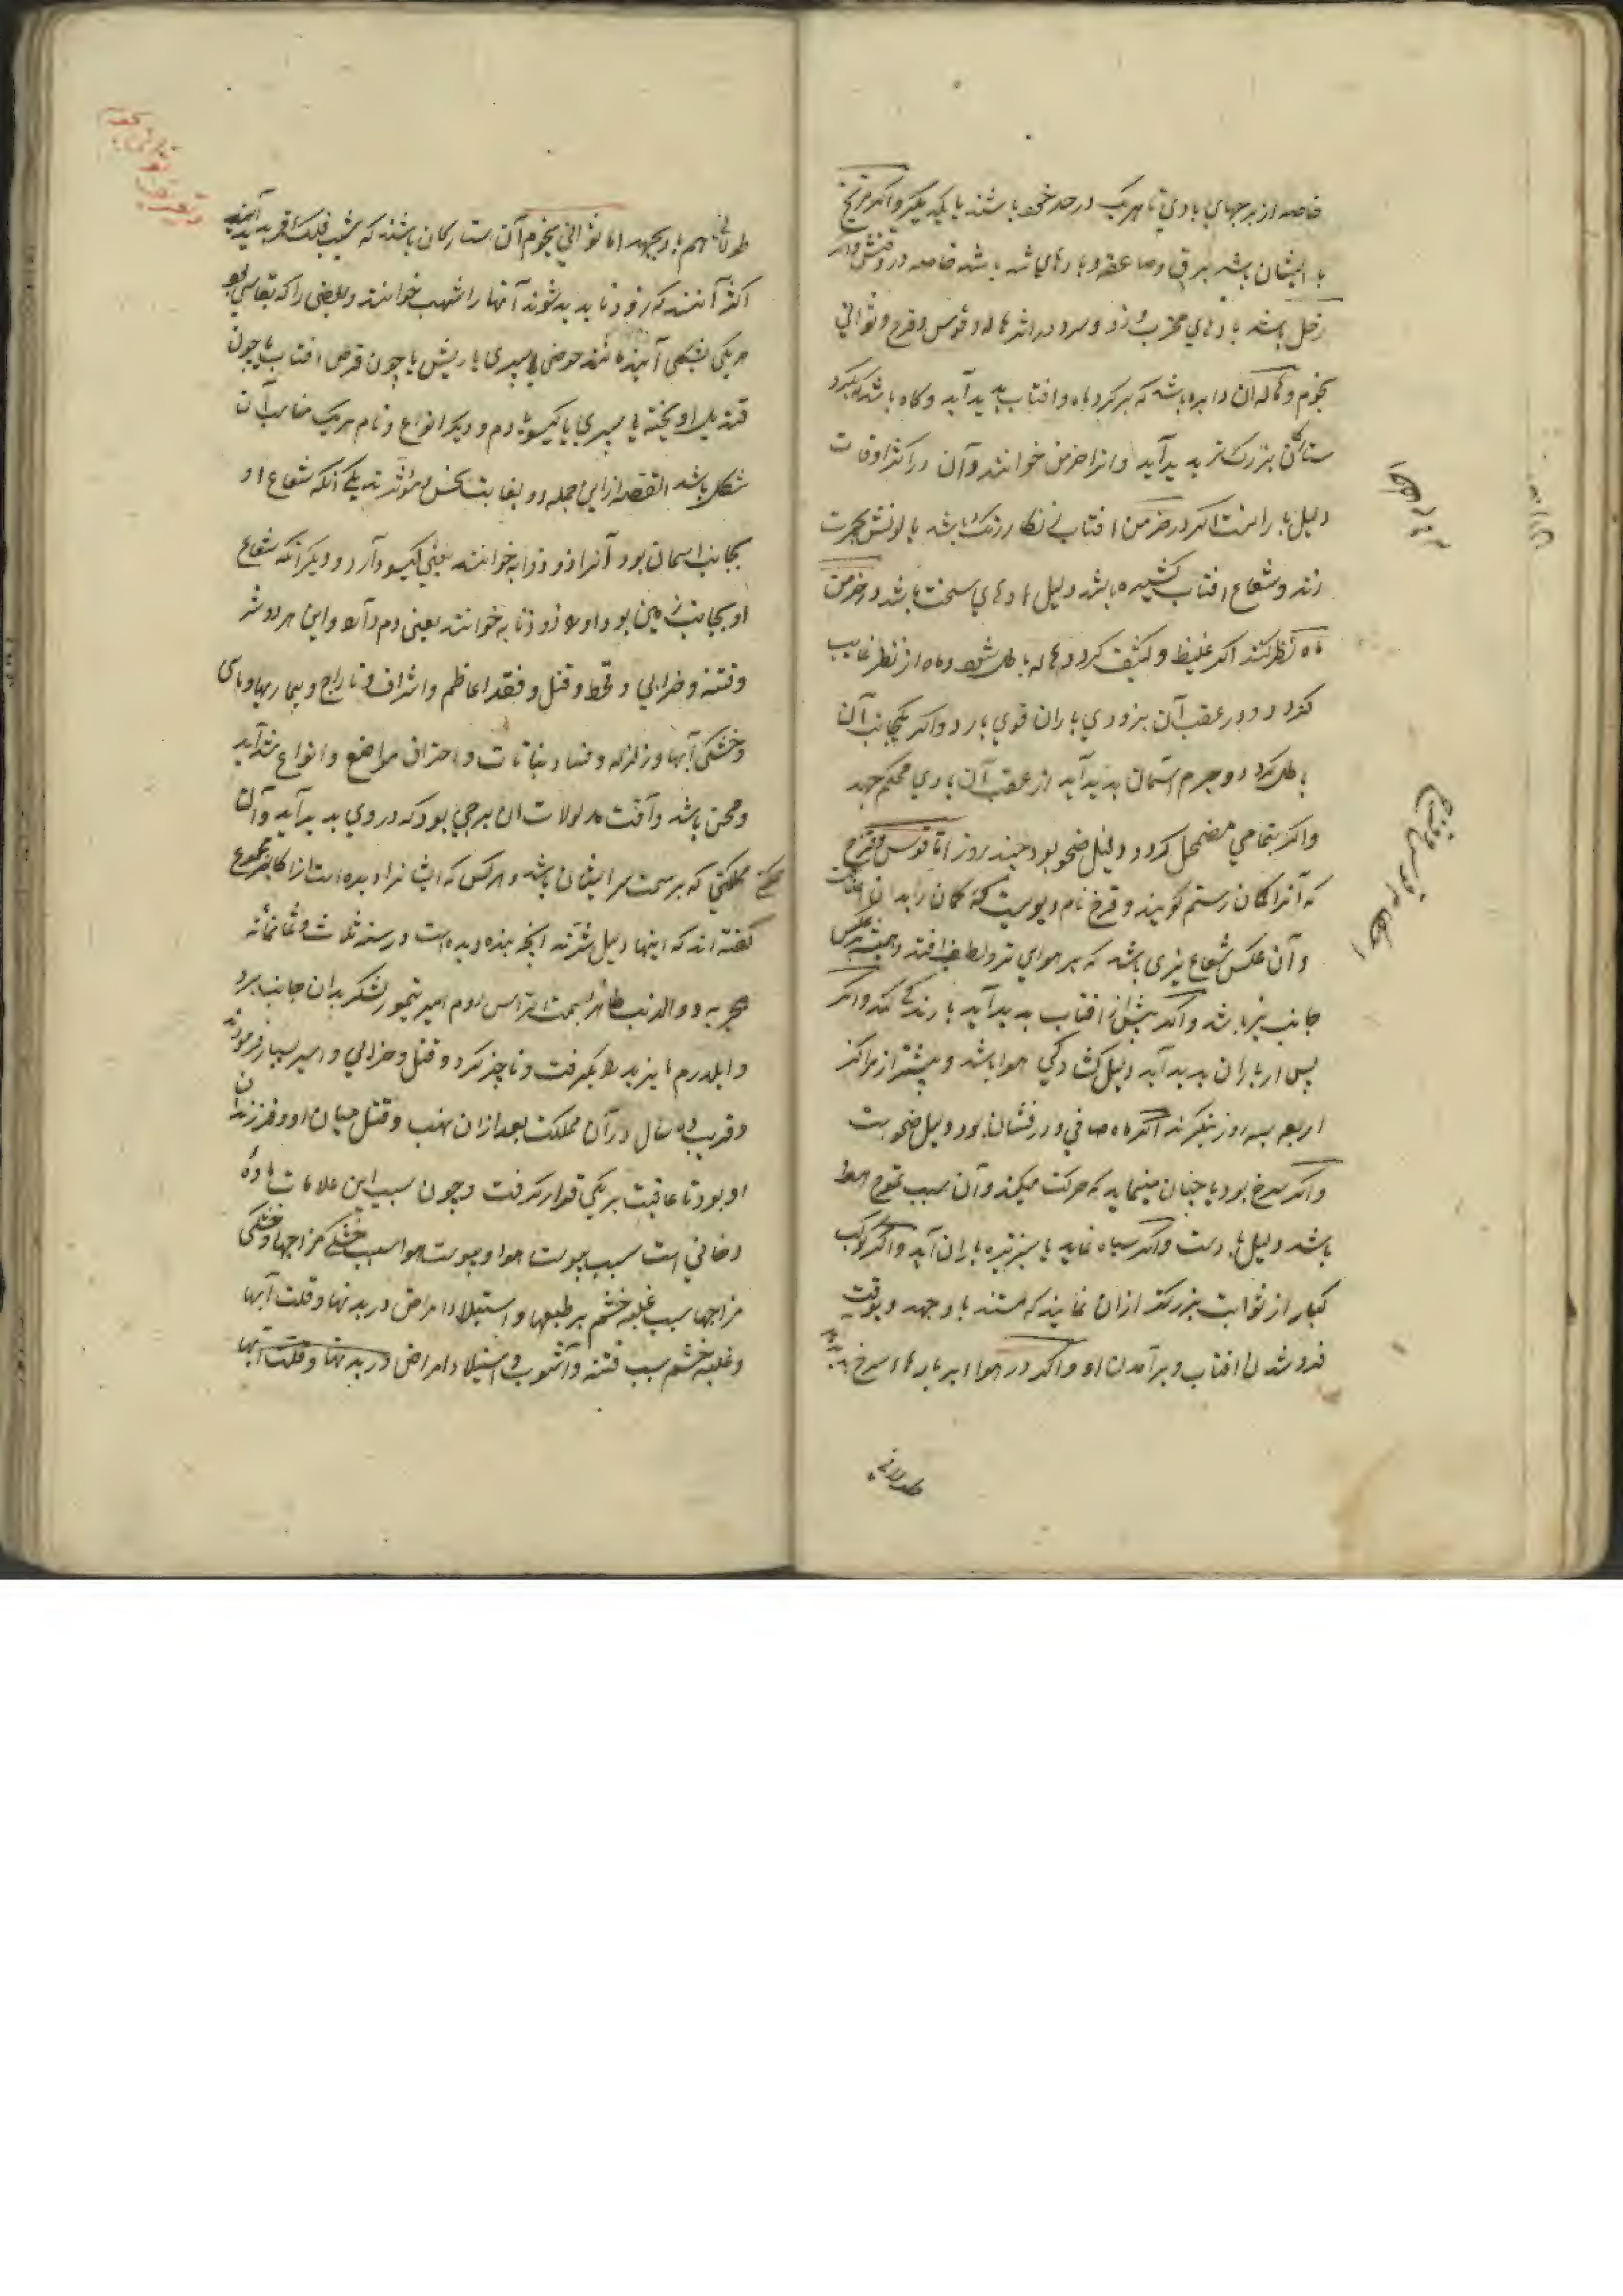 خاصه از برجهای بادی تا هریک در حد خود باشند با یکدیگر واکر مریخ
با ایشان باشد برق و صاعقه و بادهای باشد خاصه در وقتش واکر
زحل باشد بادهای مخرب وزد و سرد در اثر هاله و قوس و قزح و ثوانی
نجوم و هاله آن دایره باشد که بر کرد ماه و افتاب پدید آید و کاه باشد که بکرد
ستارکان بزرک تر پدید آید و انرا خرمن خوانند و آن در اکثر اوقات
دلیل بارانست اکر در خرمن افتاب نکارنک باشد یا لونش بحمرت
زند و شعاع افتاب کشیده باشد دلیل بادهای سخت باشد و در خرمن
ماه نظر کنند اکر غلیظ و کثیف کردد و هاله باطل شود و ماه از نظر غایب
کردد در عقب آن بزودی باران قوی بارد واکر یکجانب آن
باطل کردد و جرم آسمان پدید آید از عقب آن بادی محکم جهد
واکر بتمامی مضمحل کردد دلیل صحو بود چند روز اما قوس و قزح
که آنرا کمان رستم کویند و قزح نام دیویست که کمان را بدان
و آن عکس شعاع نیری باشد که بر هوای تر و لطیف افتد و همیشه بر عکس
جانب نیر باشد واکر پیش از افتاب پدید آید بارندکی کند واکر
پس از باران پدید آید دلیل کشادکی هوا باشد و بیشتر از مراکز
اربعه بسه روز بنکرند اکر ماه صافی و درفشان بود دلیل صحو است
واکر سرخ بود یا چنان مینماید که حرکت میکند و آن سبب تموج هوا
باشد دلیل باد است واکر سیاه نماید یا سبز تیره باران آید واکر کواکب
کبار از ثوابت بزرکتر ازان نمایند که هستند باد جهد و بوقت
فرو شدن افتاب و برآمدن او واکر در هوا ابر پارهاء سرخ
طولانی
احکام قوس قزح
طولانی هم باد جهد اما ثوانی نجوم آن ستارکان باشند که بشب فلک اقرب پدید آیند
اکثر آنند که زود ناپدید شوند آنها را شهب خوانند و بعضی را که بقا سی بود
هر یکی بشکلی آیند مانند حوضی یا سپری یا ریش یا چون قرص افتاب یا چون
قندیل اویخته یا سپری با کیسو یا دم و دیکر انواع و نام هریک مناسب آن
شکل باشد القصه ازاین جمله دو بغایت نحس و مؤثر تر یکی آنکه شعاع او
بجانب اسمان بود آنرا ذو ذوابه خوانند یعنی کیسو دار و دیکر آنکه شعاع
او بجانب زمین بود او را ذو ذنابه خوانند یعنی دم دار و این هر دو شر
و فتنه و خرابی و قحط و قتل و فقد اعاظم و اشراف و تاراج و بیماریها و بای
و خشکی آبها و زلزله و فساد نباتات و احتراق مواضع و انواع شداید
و محن باشد و آفت مدلولات ان برجی بود که در وی پدید آید و آن
مملکتی که بر سمت سر ایشان باشد و هر کس که ایشانرا دیده است از اکابر مجموع
کفته اند که اینها دلیل شرند آنچه بنده دیده است در سنه ثلاث و ثمانمائه
هجریه ذو الذنب ظاهر بسمت الراس روم امیر تیمور لشکر بدان جانب برد
و ایلدرم بایزید را بکرفت و ناچیز کرد و قتل و خرابی و اسیر بسیار فرمود
و قریب ده سال در آن مملکت بعد ازان نهب و قتل میان او و فرزندان
او بود تا عاقبت بر یکی قرار کرفت و چون سبب این علامات ماده
دخانی است سبب یبوست هوا و یبوست هوا سبب خشکی مزاجها و خشکی
مزاجها سبب غلبه خشم بر طبعها و استیلاء امراض در بدنها و قلت آبها
و غلبه خشم سبب فتنه و آشوب و استیلاء امراض در بدنها و قلت آبها